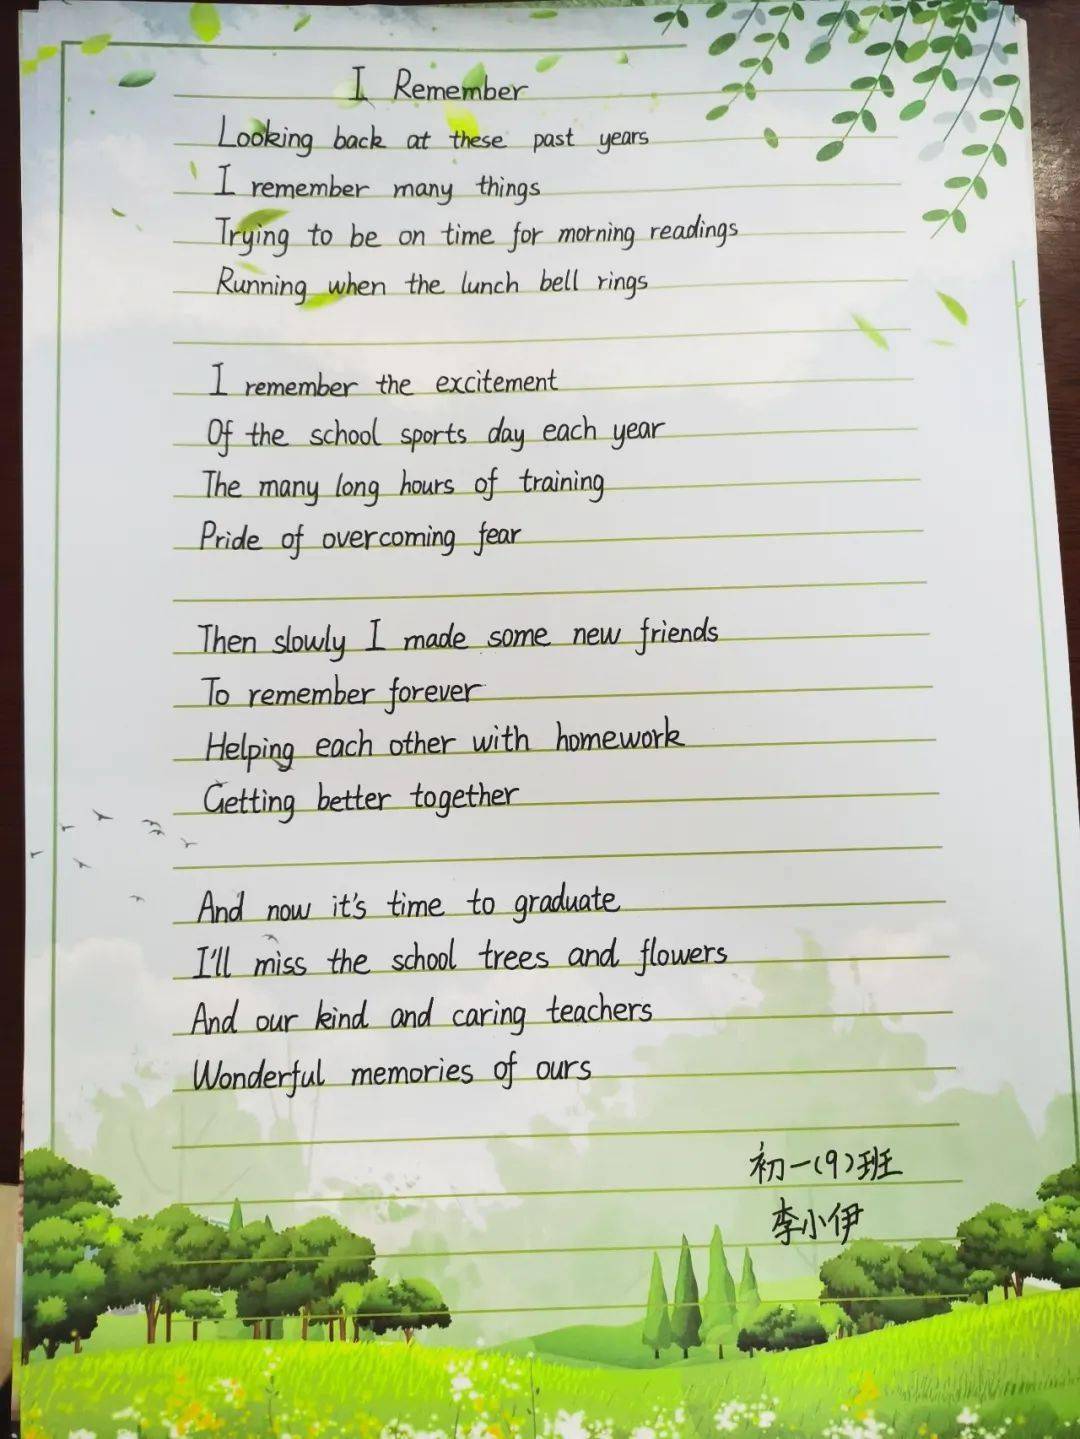 I Remember
Looking back at these past years
I remember many things
Trying to be on time for morning readings
Running when the lunch bell rings
I remember the excitement
Of the school sports day each year
The many long hours of training
Pride of overcoming fear
Then slowly I made some new friends
To remember forever
Helping each other with homework
Getting better together
And now it's time to graduate
I'll miss the school trees and flowers
And our kind and caring teachers
Wonderful memories of ours
初一(9)班
李小伊